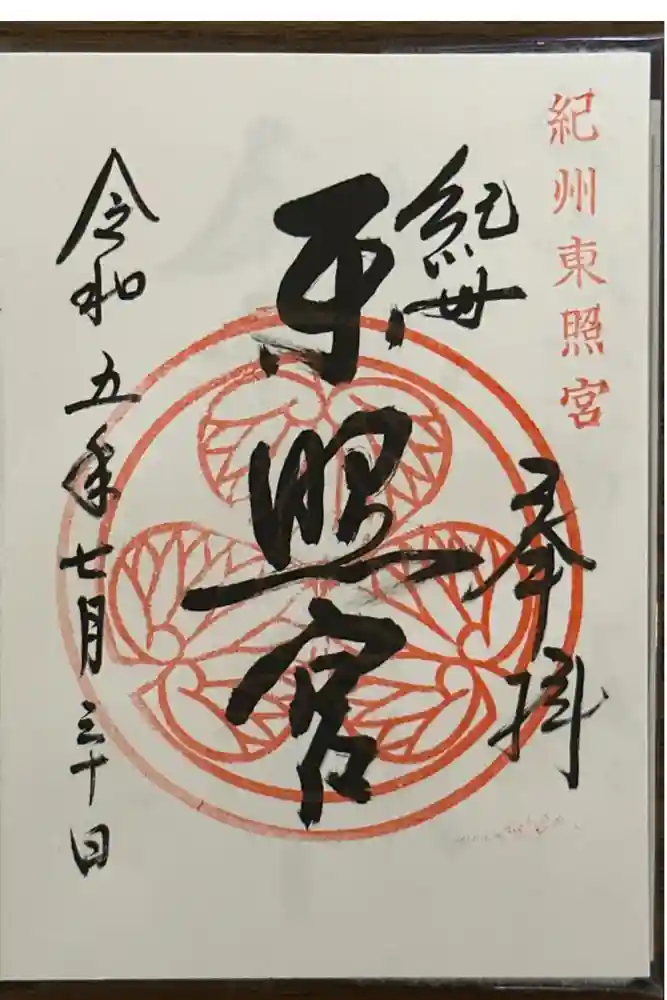 紀州東照宮
奉拝
紀州
東照宮
令和五年七月三十日